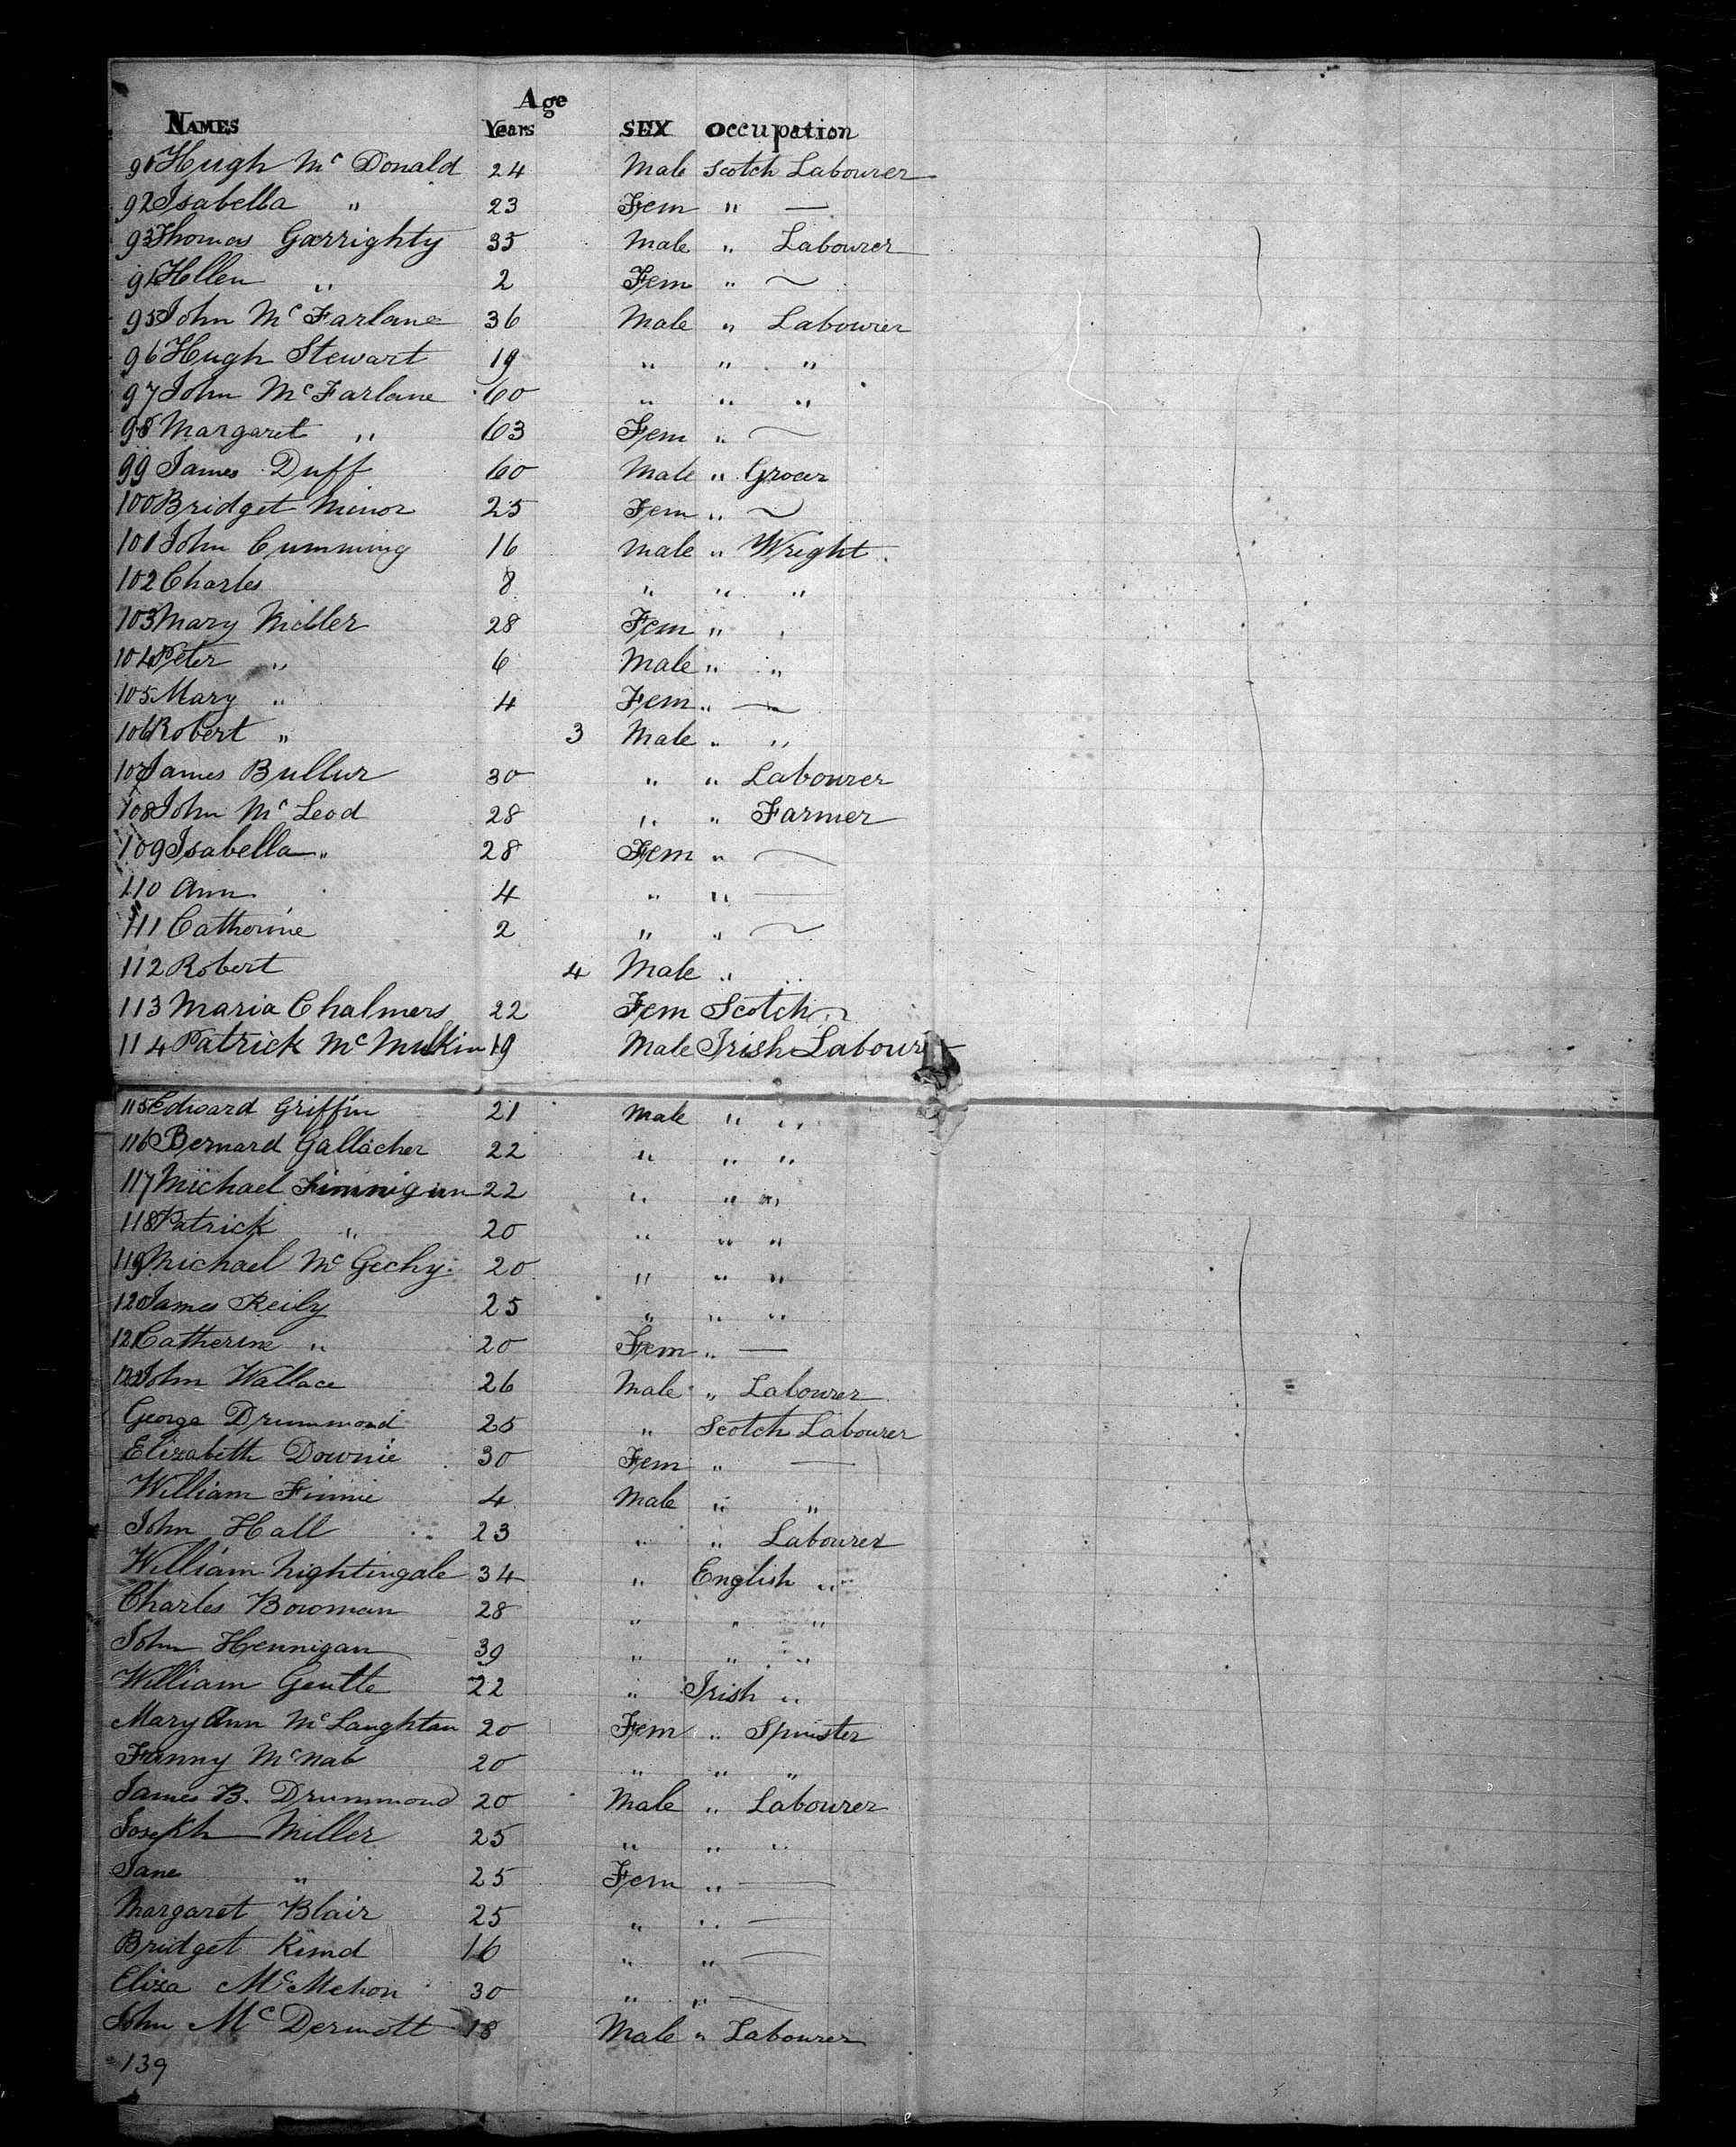 Age
NAMES Years SEX Occupation
91 Hugh Mc Donald 24 Male Scotch Labourer
92 Isabella " 23 Fem " —
93 Thomas Garrighty 35 Male " Labourer
94 Hellen " 2 Fem " ~
95 John Mc Farlane 36 Male " Labourer
96 Hugh Stewart 19 " " "
97 John Mc Farlane 60 " " "
98 Margaret " 63 Fem " ~
99 James Duff 60 Male " Grocer
100 Bridget Minor 25 Fem " ~
101 John Cumming 16 Male " Wright
102 Charles 8 " " "
103 Mary Miller 28 Fem " "
104 Peter " 6 Male " "
105 Mary " 4 Fem " ~
106 Robert " 3 Male " "
107 James Bullur 30 " " Labourer
108 John Mc Leod 28 " " Farmer
109 Isabella " 28 Fem " ~
110 Ann 4 " " —
111 Catherine 2 " " ~
112 Robert 4 Male " "
113 Maria Chalmers 22 Fem Scotch "
114 Patrick Mc Mulkin 19 Male Irish Labourer
115 Edward Griffin 21 Male " "
116 Bernard Gallacher 22 " " "
117 Michael Finnigan 22 " " "
118 Patrick " 20 " " "
119 Michael Mc Gechy 20 " " "
120 James Reily 25 " " "
121 Catherine " 20 Fem " —
122 John Wallace 26 Male " Labourer
George Drummond 25 " Scotch Labourer
Elizabeth Downie 30 Fem " —
William Finnie 4 Male " "
John Hall 23 " " Labourer
William Nightingale 34 " English "
Charles Bowman 28 " " "
John Hennigan 39 " " "
William Gentle 22 " Irish "
Mary Ann Mc Laughtan 20 Fem " Spinster
Fanny McNab 20 " " "
James B. Drummond 20 Male " Labourer
Joseph Miller 25 " " "
Jane " 25 Fem " —
Margaret Blair 25 " " —
Bridget Kind 16 " " —
Eliza McMehon 30 " " —
John Mc Dermott 18 Male " Labourer
139